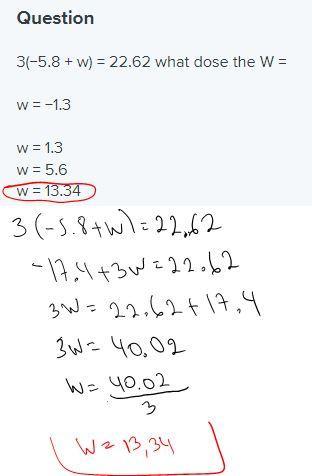 Question
3(−5.8 + w) = 22.62 what dose the W =
w = −1.3
w = 1.3
w = 5.6
w = 13.34
3(-5.8+w)=22.62
-17.4+3w=22.62
3w= 22.62+17.4
3w= 40.02
w= 40.02
3
w= 13,34